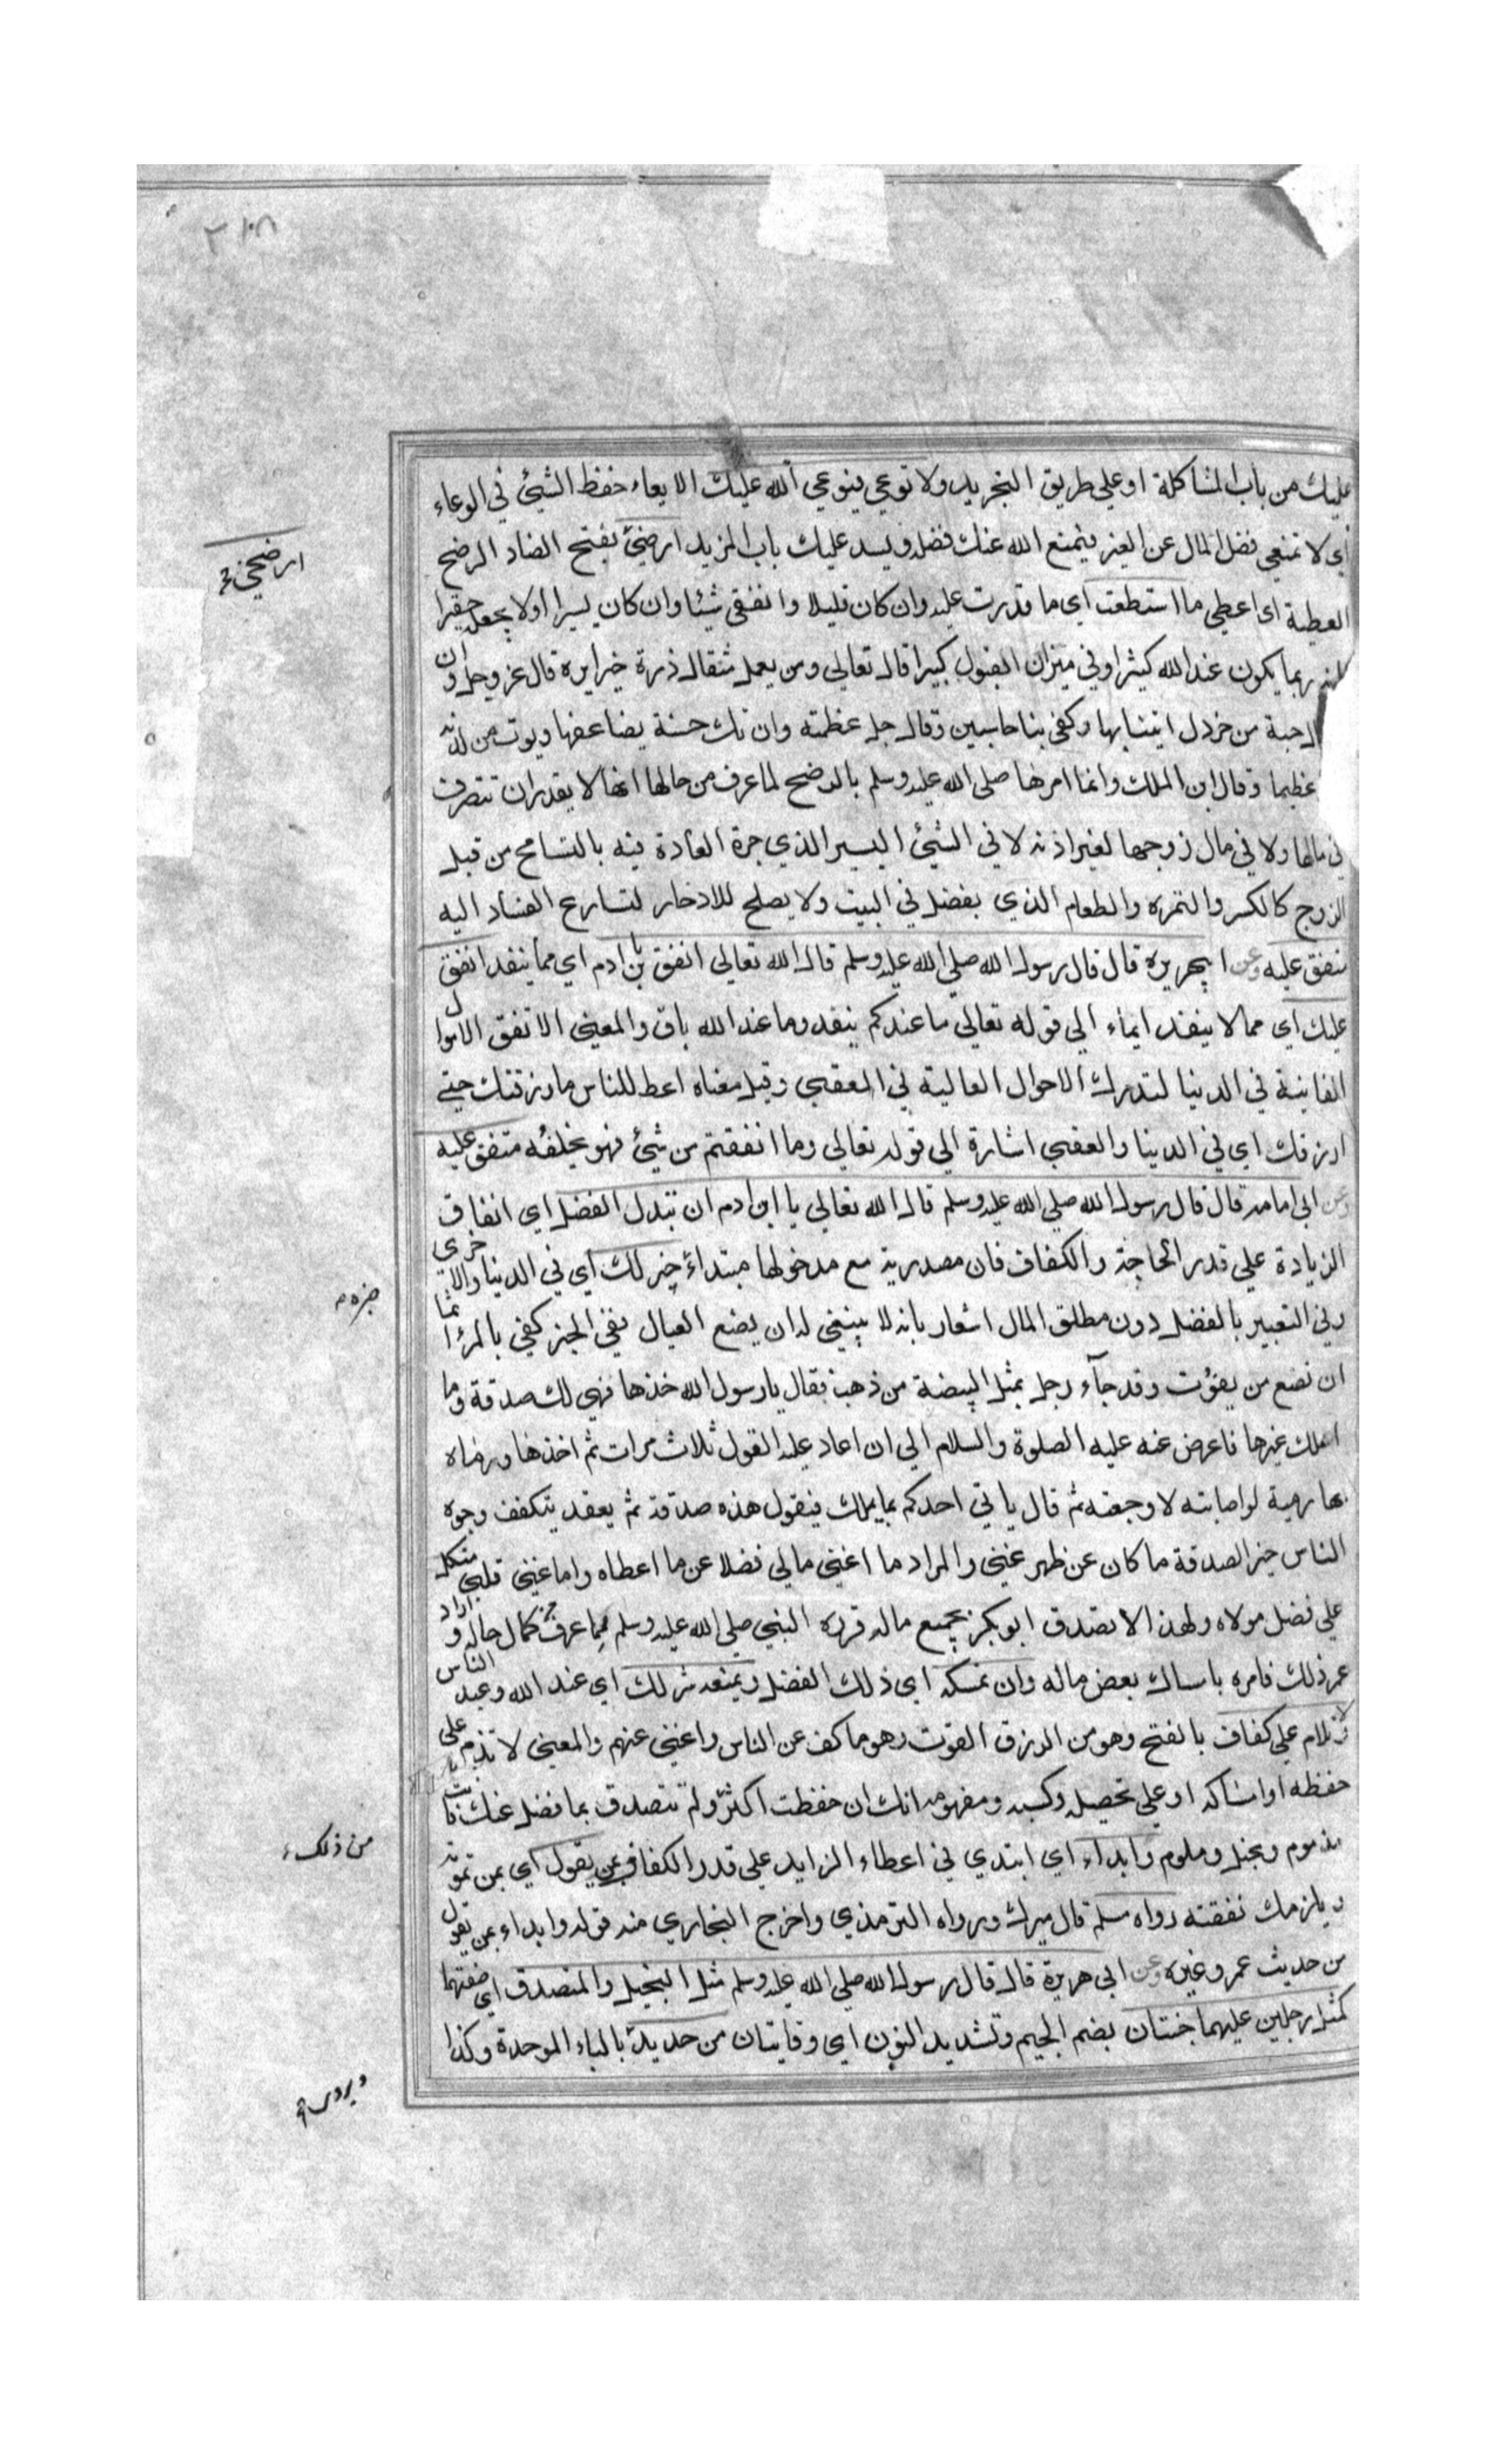 عليك من باب المشاكلة او علي طريق التجريد ولا توعي فيوعي الله عليك الايعاء حفظ الشيئ في الوعاء
اي لا تمنعي فضل المال عن الغير فيمنع الله عنك فضله ويسد عليك باب المزيد ارضخي بفتح الضاد الرضخ
العطية اي اعطي ما استطعت اي ما قدرت عليه وان كان قليلا وانفقي شيئا وان كان يسيرا اولا يجعل حقيرا
ربما يكون عند الله كثيرا وفي ميزان القبول كبيرا قال تعالي ومن يعمل مثقال ذرة خيرا يره قال عز وجل وان
حبة من خردل اتينا بها وكفي بنا حاسبين وقال جل عظمته وان تك حسنة يضاعفها ويوت من لدنه
عظيما وقال ابن الملك وانما امرها صلي الله عليه وسلم بالرضخ لما عرف من حالها انها لا يقدر ان تتصرف
في مالها ولا في مال زوجها لغير اذنه لا في الشيئ اليسير الذي جرة العادة فيه بالتسامح من قبل
الزوج كالكسر والتمره والطعام الذي يفضل في البيت ولا يصلح للادخار لتسارع الفساد اليه
متفق عليه وعن ابيهريرة قال قال رسول الله صلي الله عليه وسلم قال الله تعالي انفق يا بن ادم اي مما ينفد انفق
عليك اي مما لا ينفد ايماء الي قوله تعالي ما عندكم ينفد وما عند الله باق والمعني الا تفق الاموال
الفانية في الدنيا لتدرك الاحوال العالية في العقبي وقيل معناه اعط للناس ما رزقتك حتي
ارزقك اي في الدينا والعقبي اشارة الي قوله تعالي وما انفقتم من شيئ فهو يخلفه متفق عليه
وعن ابي امامه قال قال رسول الله صلي الله عليه وسلم قال الله تعالي يا ابن ادم ان تبدل الفضل اي انفاق
الزيادة علي قدر الحاجة والكفاف فان مصدرية مع مدخولها مبتداء خير لك اي في الدينا والاخري
وفي التعبير بالفضل دون مطلق المال اشعار بانه لا ينبغي له ان يضع العيال ففي الخبر كفي بالمرء اثما
ان تضع من يقوت وقد جآء رجل بمثل البيضة من ذهب فقال يا رسول الله خذها فهي لك صدقة وما
املك غيرها فاعرض عنه عليه الصلوة والسلام الي ان اعاد عليه القول ثلاث مرات ثم اخذها ورماه
بها رمية لو اصابته لاوجعته ثم قال ياتي احدكم بما يملك فيقول هذه صدقة ثم يعقد يتكفف وجوه
الناس خير الصدقة ما كان عن ظهر غني والمراد ما اغني مالي فضلا عن ما اعطاه واما غني قلبي متكل
علي فضل مولاه ولهذا لا تصدق ابو بكر بجميع ماله قرره النبي صلي الله عليه وسلم لما عرف كمال حاله واراد
عمر ذلك فامره بامساك بعض ماله وان تمسكه اي ذلك الفضل وتمنعه شر لك اي عند الله وعند الناس
ولا تلام علي كفاف بالفتح وهو من الرزق القوت وهو ما كف عن الناس واغني عنهم والمعني لا تذم علي
حفظه او امساكه او علي تحصيله وكسبه ومفهومه انك ان حفظت اكثر ولم تتصدق بما فضل عنك فانت
مذموم وبخيل وملوم وابداء اي ابتدي في اعطاء الزايد علي قدر الكفاف بمن يقول اي بمن تمونه
ويلزمك نفقته رواه مسلم قال ميرك ورواه الترمذي واخرج البخاري منه قوله وابداء بمن تعول
من حديث عمر وغيره وعن ابي هريرة قال قال رسول الله صلي الله عليه وسلم مثل البخيل والمتصدق اي صفتهما
كمثل رجلين عليهما جنتان بضم الجيم وتشديد النون اي وقايتان من حديد بالباء الموحدة وكذا
ارضخي
خبره
من ذلك